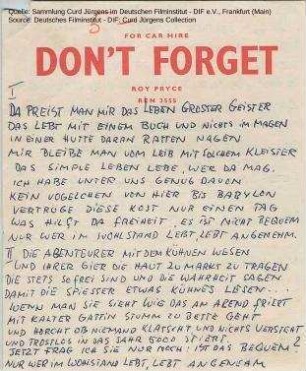 Quelle: Sammlung Curd Jürgens im Deutschen Filminstitut - DIF e.V., Frankfurt (Main)
Source: Deutsches Filminstitut - DIF: Curd Jürgens Collection
FOR CAR HIRE
DON'T FORGET
ROY PRYCE
REN 3555
I
DA PREIST MAN MIR DAS LEBEN GROSSER GEISTER
DAS LEBT MIT EINEM BUCH UND NICHTS IM MAGEN
IN EINER HÜTTE DARAN RATTEN NAGEN
MIR BLEIBE MAN VOM LEIB MIT SOLCHEM KLEISTER
DAS SIMPLE LEBEN LEBE, WER DA MAG.
ICH HABE UNTER UNS GENUG DAVON
KEIN VÖGELCHEN VON HIER BIS BABYLON
VERTRÜGE DIESE KOST NUR EINEN TAG
WAS HILFT DA FREIHEIT, ES IST NICHT BEQUEM
NUR WER IM WOHLSTAND LEBT LEBT ANGENEHM.
II DIE ABENTEURER MIT DEM KÜHNEN WESEN
UND IHRER GIER DIE HAUT ZU MARKT ZU TRAGEN
DIE STETS SO FREI SIND UND DIE WAHRHEIT SAGEN
DAMIT DIE SPIESSER ETWAS KÜHNES LESEN...
WENN MAN SIE SIEHT WIE DAS AM ABEND FRIERT
MIT KALTER GATTIN STUMM ZU BETTE GEHT
UND HORCHT OB NIEMAND KLATSCHT UND NICHTS VERSTEHT
UND TROSTLOS IN DAS JAHR 5000 STIERT
JETZT FRAG ICH SIE NUR NOCH: IST DAS BEQUEM?
NUR WER IM WOHLSTAND LEBT, LEBT ANGENEHM